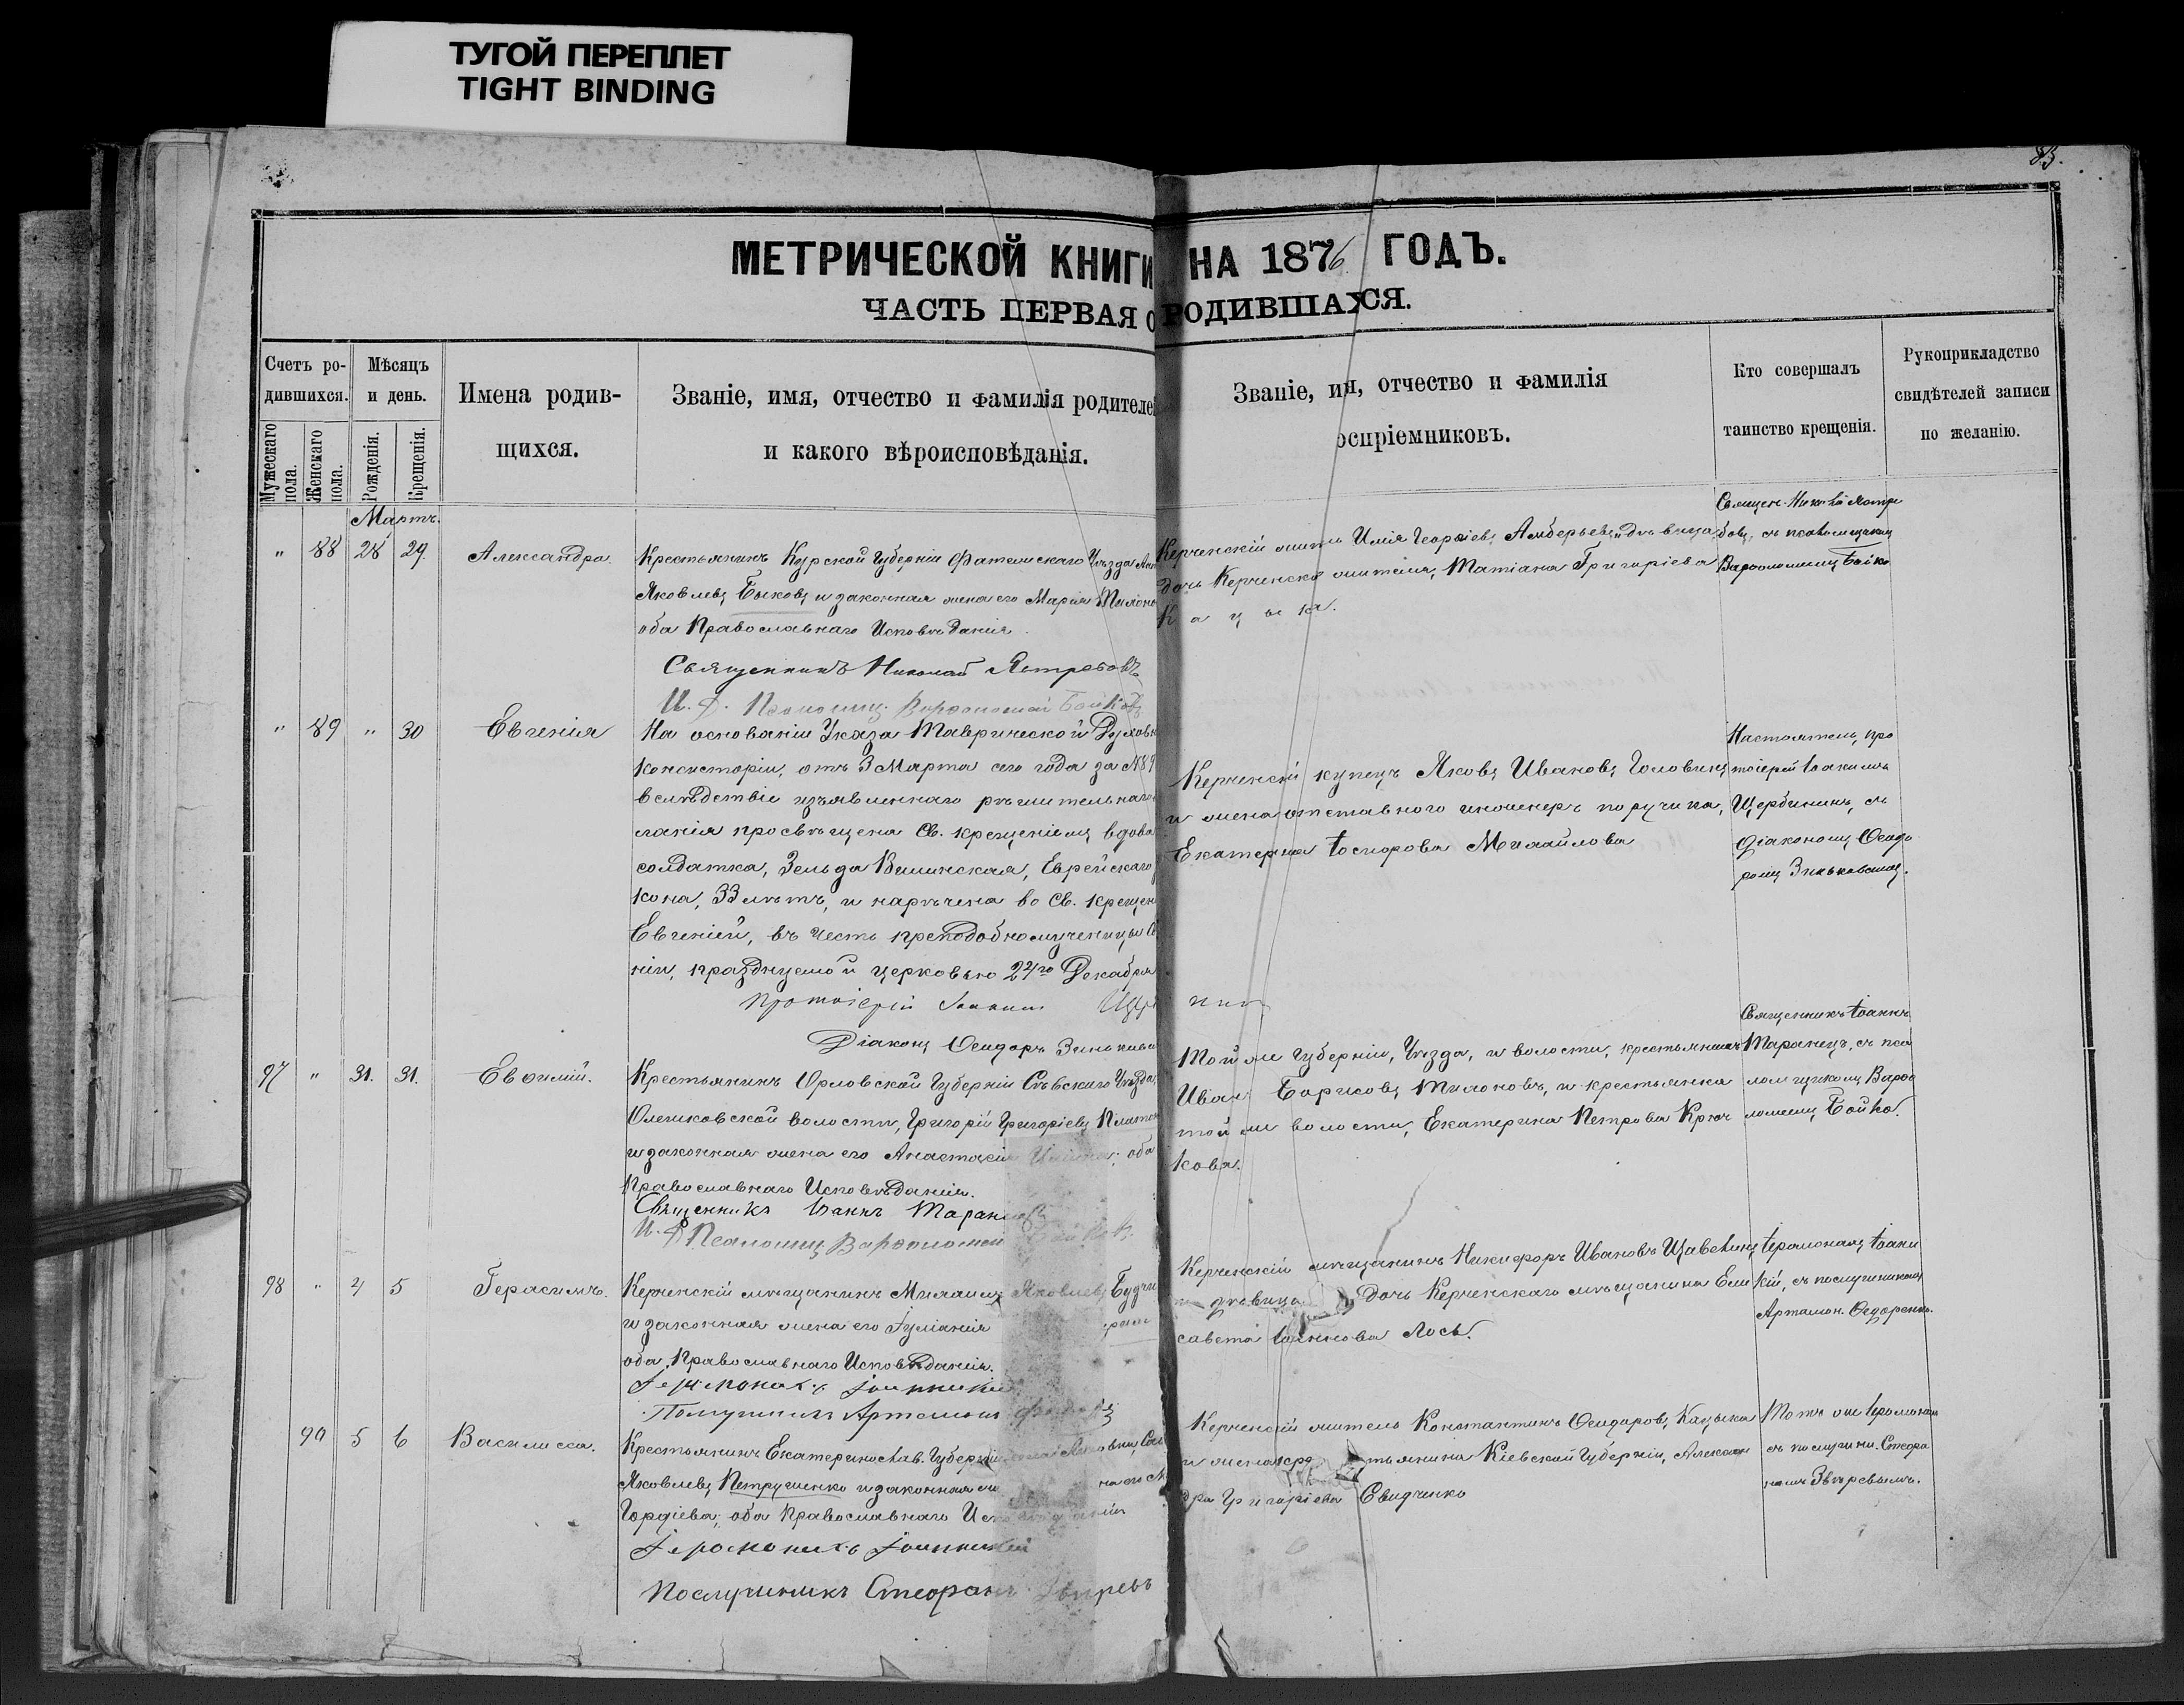 ТУГОЙ ПЕРЕПЛЕТ
TIGHT BINDING
83.
МЕТРИЧЕСКОЙ КНИГИ НА 1876 ГОДЪ.
ЧАСТЬ ПЕРВАЯ О РОДИВШАХСЯ.
Счетъ ро-
дившихся.
Мужескаго пола.
Женскаго пола.
Мѣсяцъ
и день.
Рожденія.
Крещенія.
Имена родив-
щихся.
Званіе, имя, отчество и фамилія родителе
и какого вѣроисповѣданія.
Званіе, ия, отчество и фамилія
оспріемниковъ.
Кто совершалъ
таинство крещенія.
Рукоприкладство
свидѣтелей записи
по желанію.
Мартъ.
" 88 28 29 Александра.
Крестьянинъ Курской Губерніи Фатежскаго Уѣзда
Яковлевъ Быковъ и законная жена его Марія
оба Православнаго Исповѣданія.
Священникъ Николай Ястребовъ
И. Д. Псаломщ. Варѳоломей Бойко
Керченскій житель Илія Георгіевъ и дѣвица
дочь Керченск жителя, Татіана Григоріева
Кацыка.
Священ. Николай Ястре
бовъ, съ псаломщикомъ
Варѳоломеемъ Бойко
" 89 " 30 Евгенія
На основаніи Указа Таврической Духовн
Консисторіи, отъ 3 Марта сего года за №
вслѣдствіе изъявленнаго рѣшительнаго
ланія просвѣщена Св. крещеніемъ вдова
солдатка, Зельда Еврейскаго
кона, 33 лѣтъ, и наречена во Св. крещен
Евгеніей, въ честь преподобномученицы
ніи, празднуемой церковью 24го Декабря
Протоіерей Іоакимъ
Діаконъ Ѳеодоръ
Керченскій купецъ Яковъ Ивановъ Головинъ
и жена отставного инженеръ поручика,
Екатерина Іосифова Михайлова
Настоятель, про
тоіерей Іоакимъ
Щербининъ, съ
діакономъ Ѳеодо
ромъ Зиньковскимъ.
97 " 31. 31. Евѳимій.
Крестьянинъ Орловской Губерніи Сѣвскаго Уѣзда,
волости, Григорій Григоріевъ
и законная жена его Анастасія оба
Православнаго Исповѣданія.
Священникъ Іоаннъ Таранецъ
И. Д. Псаломщ. Варѳоломей Бойко
Той же Губерніи, Уѣзда, и волости, крестьянинъ
Иван Борисовъ и крестьянка
той же волости, Екатерина Петрова Крюч
кова.
Священникъ Іоаннъ
Таранецъ, съ пса
ломщикомъ Варѳо
ломеемъ Бойко.
98 " 4 5 Герасимъ.
Керченскій мѣщанинъ Михаилъ Яковлевъ
и законная жена его Іуліанія
оба Православнаго Исповѣданія.
Іеромонахъ Іоанникій
Послушникъ Артамонъ
Керченскій мѣщанинъ Никифоръ Ивановъ
и дѣвица дочь Керченскаго мѣщанина Ели
савета Іоаннова Лось.
Іеромонахъ Іоанни
кій, съ послушникомъ
Артамон. Ѳедоренко.
90 5 6 Василисса.
Крестьянинъ Екатеринослав. Губерніи
Яковлевъ Петрушенко и законная
Гордіева, оба Православнаго Исповѣданія
Іеромонахъ Іоанникій
Послушникъ Стефанъ Звѣревъ
Керченскій житель Константинъ Ѳеодоровъ Кацыка
и жена кре тьянина Кіевской Губерніи, Алексан
дра Григоріева Свидченко
Тотъ же Іеромонах
съ послушн. Стефа
номъ Звѣревымъ.